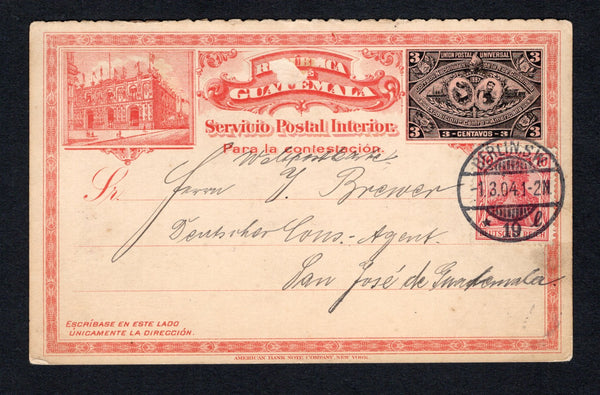 UNION POSTAL UNIVERSAL
3 3
REPUBLICA
DE
GUATEMALA
3 CENTAVOS 3
Servicio Postal Interior.
Para la contestación.
Weltpostkarte
BERLIN.S.W.
-1.3.04.1-2N.
* 19 l
Sr. Herrn J. Brewer
Deutscher Cons.-Agent.
San José de Guatemala.
ESCRÍBASE EN ESTE LADO
ÚNICAMENTE LA DIRECCIÓN.
AMERICAN BANK NOTE COMPANY NEW YORK.